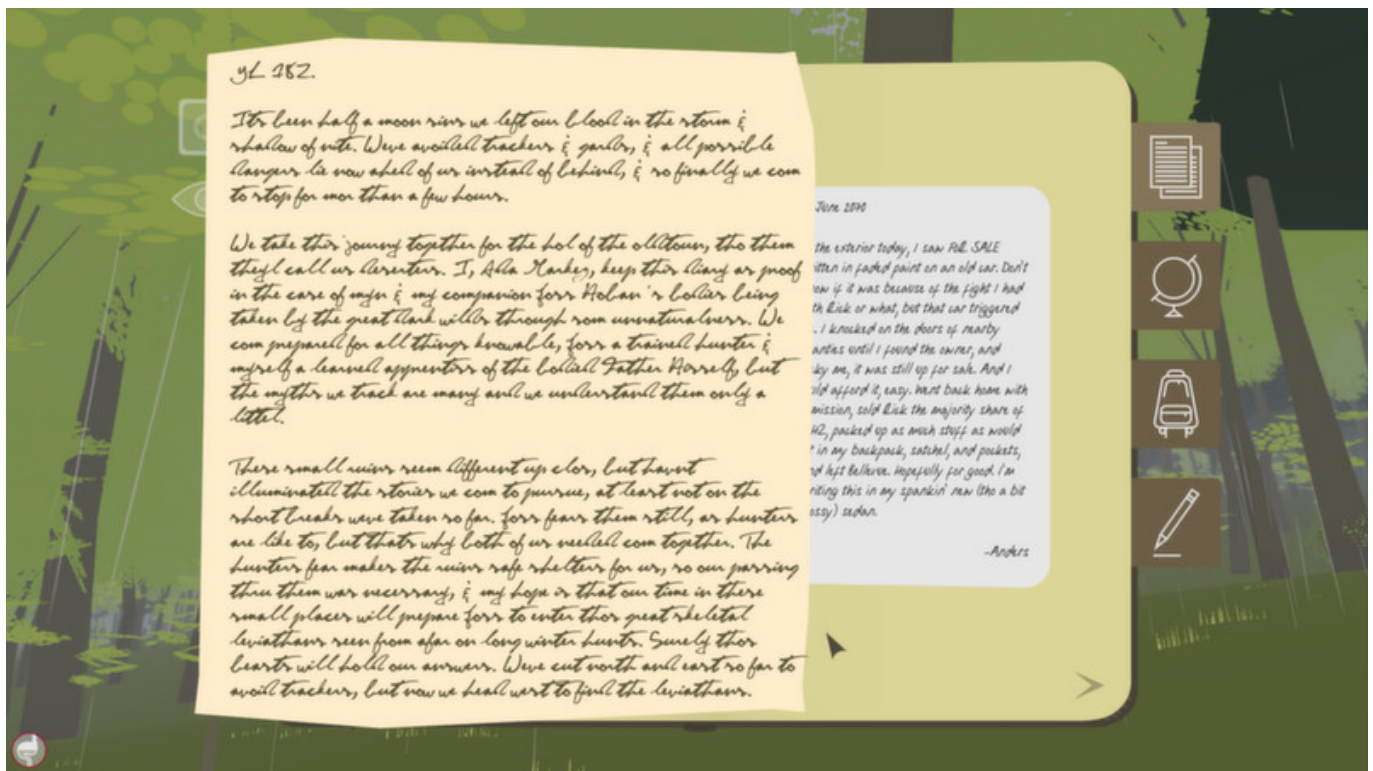 yL 182.
Its been half a moon sins we left our blood in the storm &
shadow of nite. Weve avoided trackers & gards, & all possible
dangers lie now ahed of us insted of behind, & so finally we com
to stop for mor than a few hours.
We take this journy together for the hol of the oldtoun, tho them
theyl call us deserters. I, Ada Markey, keep this diary as proof
in the case of myn & my companion Joss Hoban's bodies being
taken by the great dark wilds through som unnaturalness. We
com prepared for all things knowable, Joss a trained hunter &
myself a learned apprentiss of the bodied Father Hisself, but
the myths we track are many and we understand them only a
littel.
These small ruins seem different up clos, but havnt
illuminated the stories we com to pursue, at least not on the
short breaks weve taken so far. Joss fears them still, as hunters
are like to, but thats why both of us needed com together. The
hunters fear makes the ruins safe shelters for us, so our passing
thru them was necessary, & my hope is that our time in these
small places will prepare Joss to enter thos great skeletal
leviathans seen from afar on long winter hunts. Surely thos
beasts will hold our answers. Weve cut north and east so far to
avoid trackers, but now we head west to find the leviathans.
June 2070
the exterior today, I saw FOR SALE
itten in faded paint on an old car. Don't
ow if it was because of the fight I had
th Rick or what, but that car triggered
. I knocked on the doors of nearby
anties until I found the owner, and
ky me, it was still up for sale. And I
old afford it, easy. Went back home with
mission, sold Rick the majority share of
H2, packed up as much stuff as would
t in my backpack, satchel, and pockets,
nd left Bellevue. Hopefully for good. I'm
riting this in my spankin' new (tho a bit
ossy) sedan.
-Anders